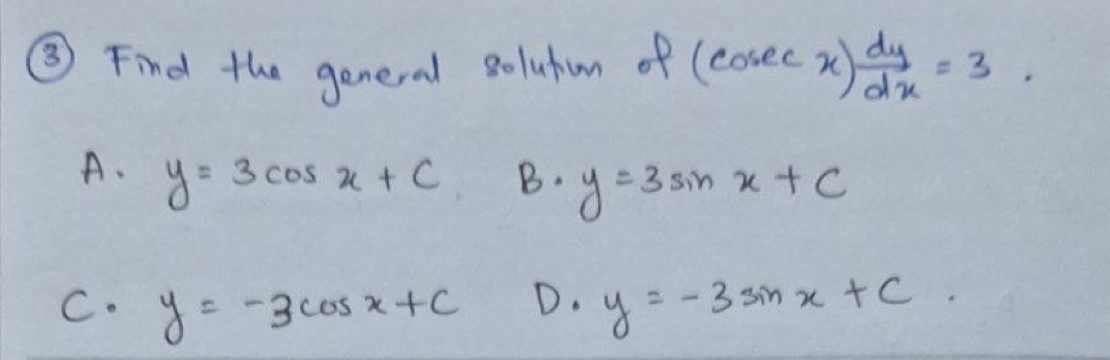 ③ Find the general solution of (cosec x) dy/dx = 3 .
A. y = 3 cos x + C B. y = 3 sin x + C
C. y = -3 cos x + C D. y = -3 sin x + C .